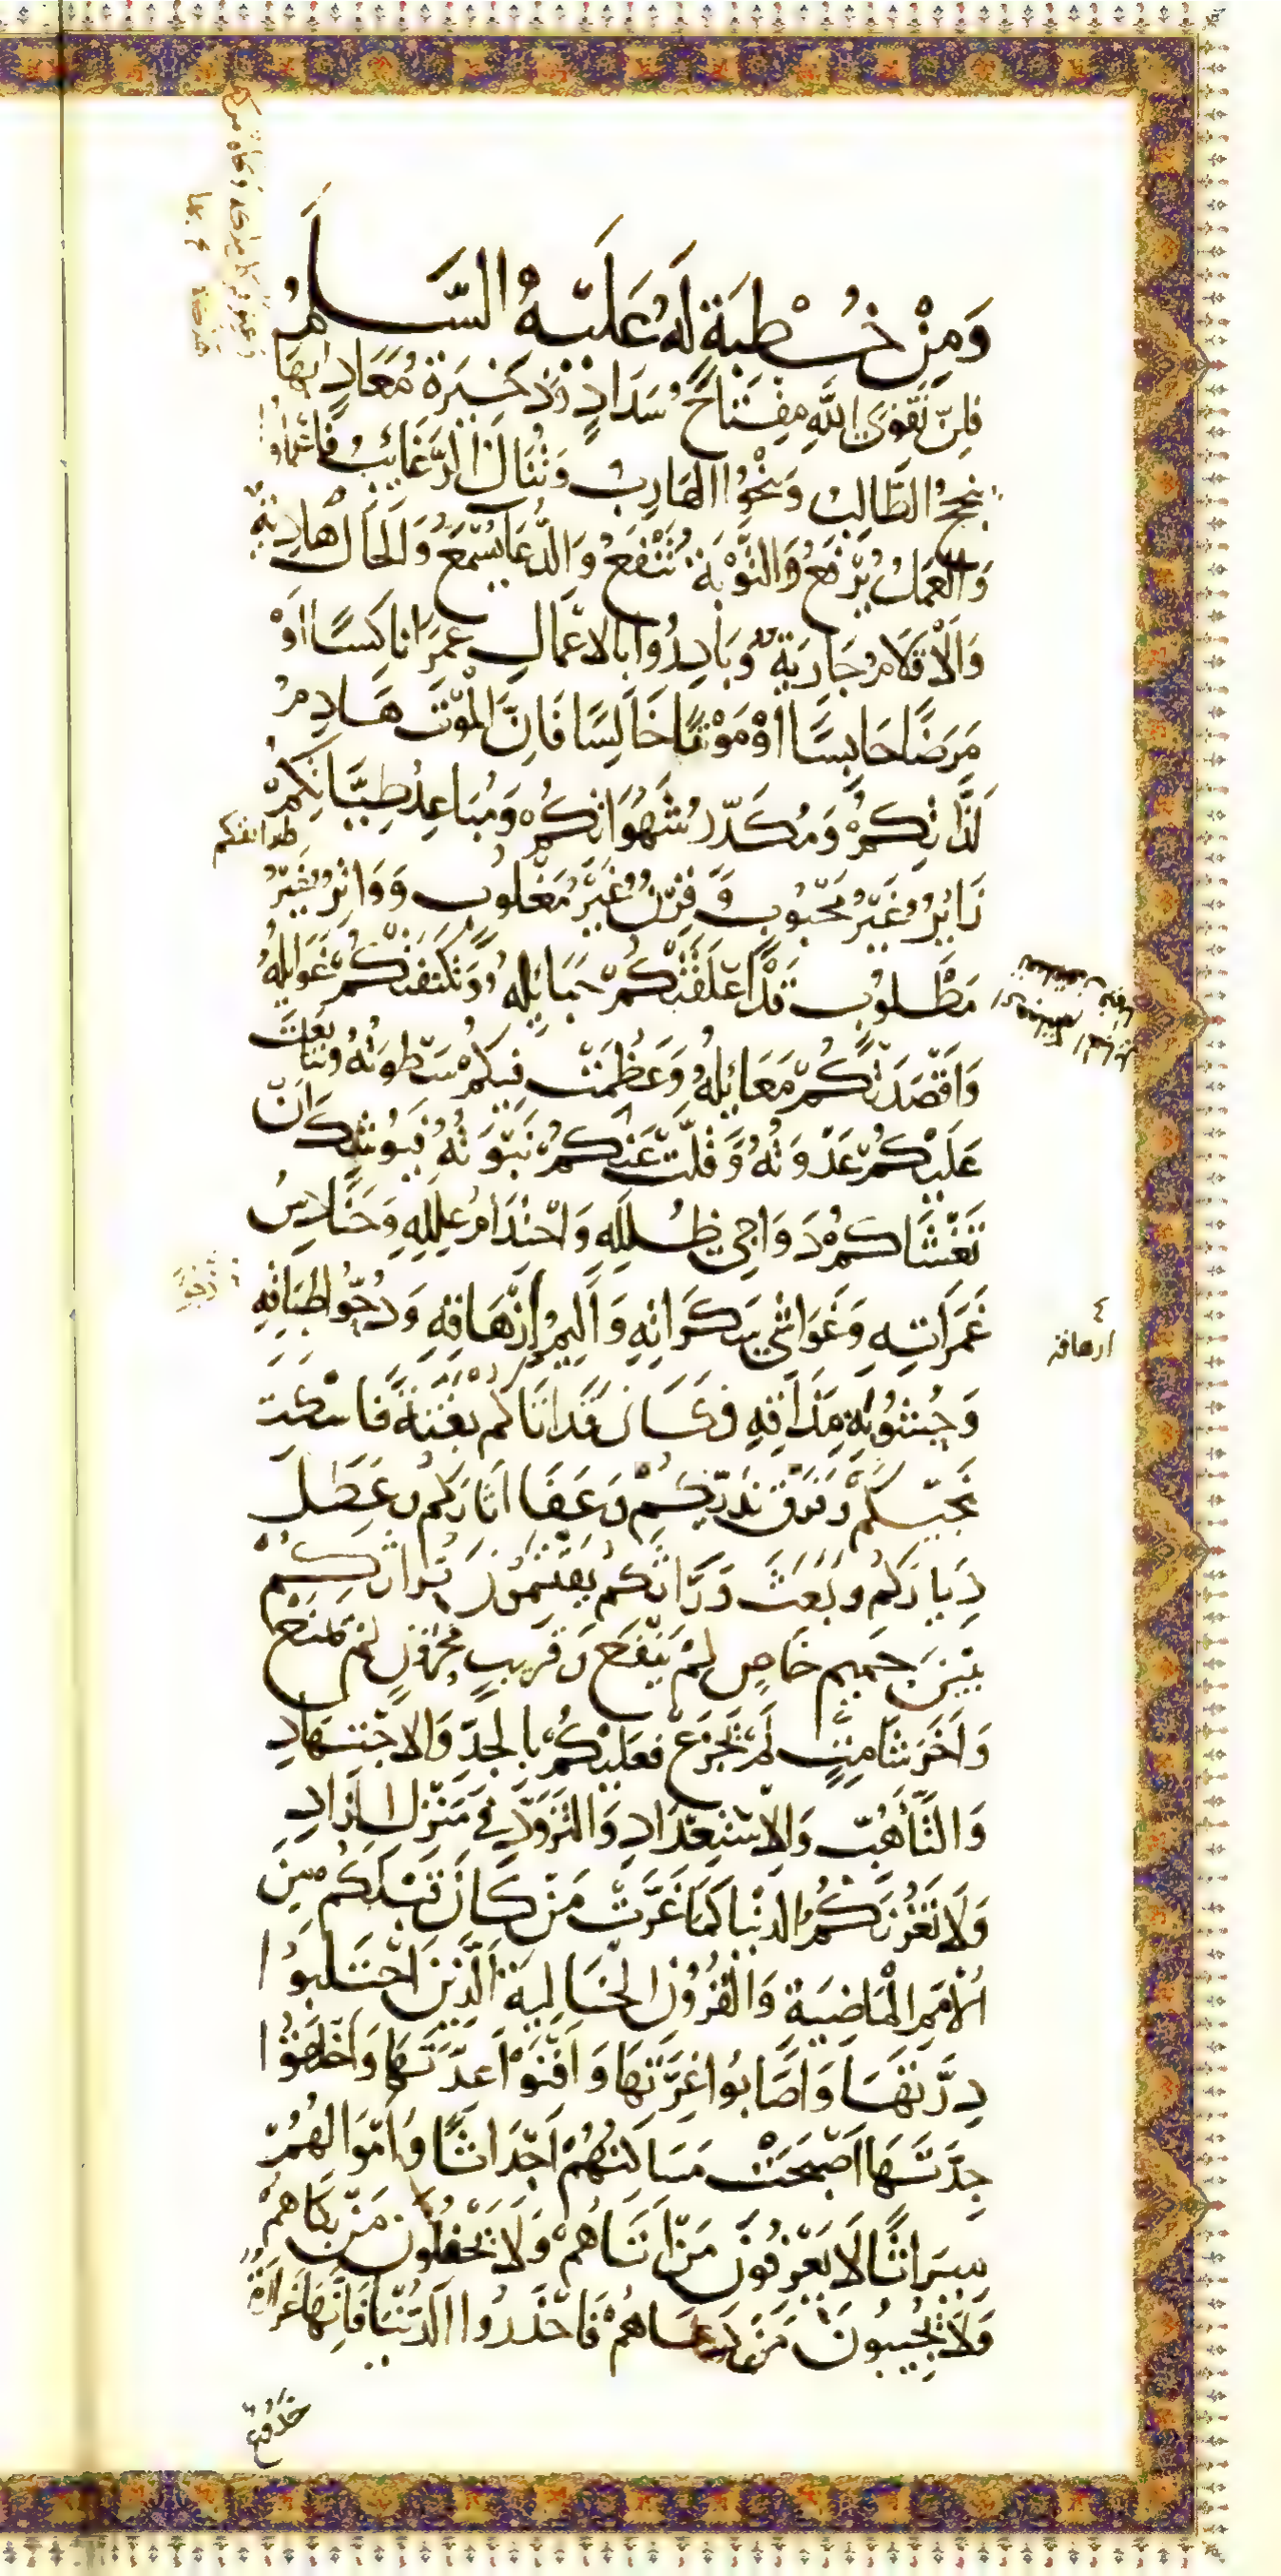 وَمِنْ خُطْبَةٍ لَهُ عَلَيْهِ السَّلَمُ
فَإِنَّ تَقْوَى اللَّهِ مِفْتَاحُ سَدَادٍ وَذَخِيرَةُ مَعَادٍ بِهَا
يَنْجَحُ الطَّالِبُ وَيَنْجُوا الهَارِبُ وَتُنَالُ الرَّغَائِبُ فَاعْمَلُوا
وَالْعَمَلُ يُرْفَعُ وَالتَّوْبَةُ تَنْفَعُ وَالدُّعَا يُسْمَعُ وَالْحَالُ هَادِيَةٌ
وَالْأَقْلَامُ جَارِيَةٌ وَبَادِرُوا بِالْأَعْمَالِ عُمْرًا نَاكِسًا أَوْ
مَرَضًا حَابِسًا أَوْ مَوْتًا خَالِسًا فَإِنَّ الْمَوْتَ هَادِمُ
لَذَّاتِكُمْ وَمُكَدِّرُ شَهَوَاتِكُمْ وَمُبَاعِدُ طِيَّاتِكُمْ
زَائِرٌ غَيْرُ مَحْبُوبٍ وَقِرْنٌ غَيْرُ مَغْلُوبٍ وَوَاتِرٌ غَيْرُ
مَطْلُوبٍ قَدْ أَعْلَقَتْكُمْ حَبَائِلُهُ وَتَكَنَّفَتْكُمْ غَوَائِلُهُ
وَأَقْصَدَتْكُمْ مَعَابِلُهُ وَعَظُمَتْ فِيكُمْ سَطْوَتُهُ وَتَتَابَعَتْ
عَلَيْكُمْ عَدْوَتُهُ وَقَلَّتْ عَنْكُمْ نَبْوَتُهُ فَيُوشِكُ أَنْ
تَغْشَاكُمْ دَوَاجِي ظُلَلِهِ وَاحْتِدَامُ عِلَلِهِ وَحَنَادِسُ
غَمَرَاتِهِ وَغَوَاشِي سَكَرَاتِهِ وَأَلِيمُ إِزْهَاقِهِ وَدُجُوُّ إِطْبَاقِهِ
وَجُشُوبَةُ مَذَاقِهِ فَكَأَنْ قَدْ أَتَاكُمْ بَغْتَةً فَأَسْكَتَ
نَجِيَّكُمْ وَفَرَّقَ نَدِيَّكُمْ وَعَفَّا آثَارَكُمْ وَعَطَّلَ
دِيَارَكُمْ وَبَعَثَ وُرَّاثَكُمْ يَقْتَسِمُونَ تُرَاثَكُمْ
بَيْنَ حَمِيمٍ خَاصٍّ لَمْ يَنْفَعْ وَقَرِيبٍ مَحْزُونٍ لَمْ يَمْنَعْ
وَآخَرَ شَامِتٍ لَمْ يَجْزَعْ فَعَلَيْكُمْ بِالْجَدِّ وَالِاجْتِهَادِ
وَالتَّأَهُّبِ وَالِاسْتِعْدَادِ وَالتَّزَوُّدِ فِي مَنْزِلِ الزَّادِ
وَلَا تَغُرَّنَّكُمُ الدُّنْيَا كَمَا غَرَّتْ مَنْ كَانَ قَبْلَكُمْ مِنَ
الْأُمَمِ الْمَاضِيَةِ وَالْقُرُونِ الْخَالِيَةِ الَّذِينَ احْتَلَبُوا
دِرَّتَهَا وَأَصَابُوا غِرَّتَهَا وَأَفْنَوْا عِدَّتَهَا وَأَخْلَقُوا
جِدَّتَهَا أَصْبَحَتْ مَسَاكِنُهُمْ أَجْدَاثًا وَأَمْوَالُهُمْ
مِيرَاثًا لَا يَعْرِفُونَ مَنْ أَتَاهُمْ وَلَا يَحْفِلُونَ مَنْ بَكَاهُمْ
وَلَا يُجِيبُونَ مَنْ دَعَاهُمْ فَاحْذَرُوا الدُّنْيَا فَإِنَّهَا غَرَّارَةٌ
خَدُوعٌ
ارهاقه